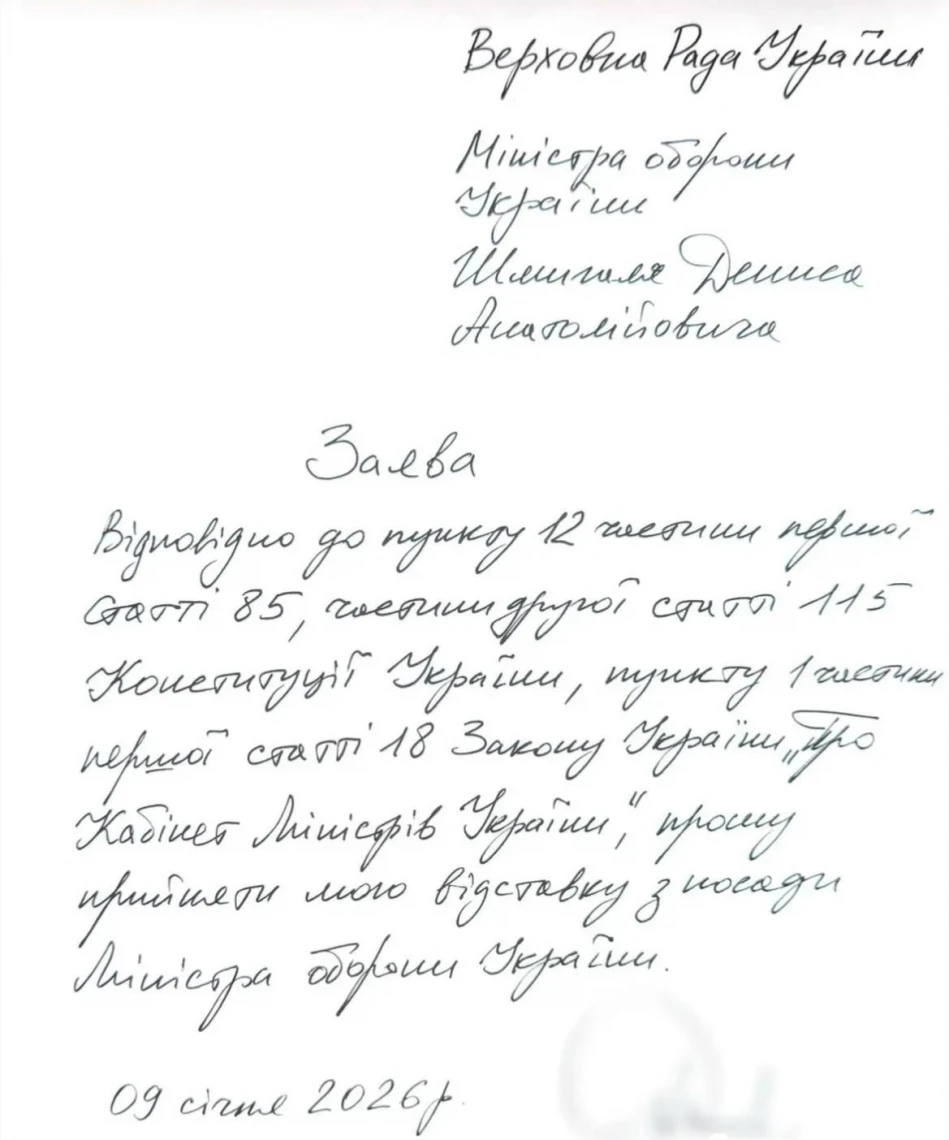 Верховна Рада України
Міністра оборони
України
Шмигаля Дениса
Анатолійовича
Заява
Відповідно до пункту 12 частини першої
статті 85, частини другої статті 115
Конституції України, пункту 1 частини
першої статті 18 Закону України „Про
Кабінет Міністрів України", прошу
прийняти мою відставку з посади
Міністра оборони України.
09 січня 2026 р.